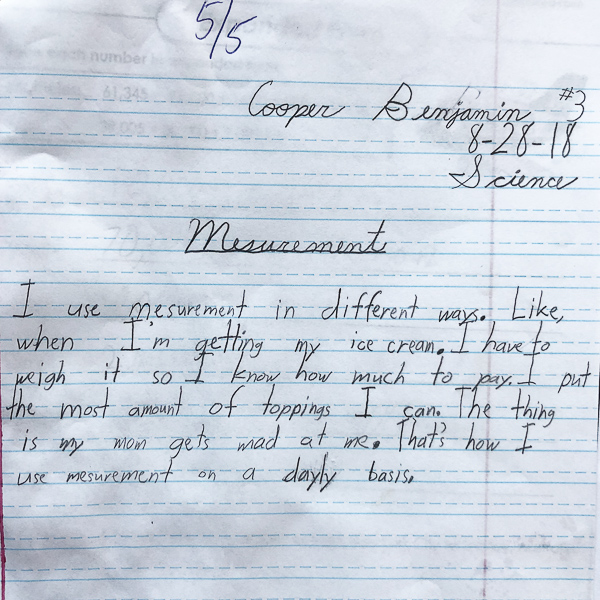 5/5
number
61,345
Cooper Benjamin #3
8-28-18
Science
Mesurement
I use mesurement in different ways. Like,
when I'm getting my ice cream. I have to
weigh it so I know how much to pay. I put
the most amount of toppings I can. The thing
is my mom gets mad at me. That's how I
use mesurement on a dayly basis.